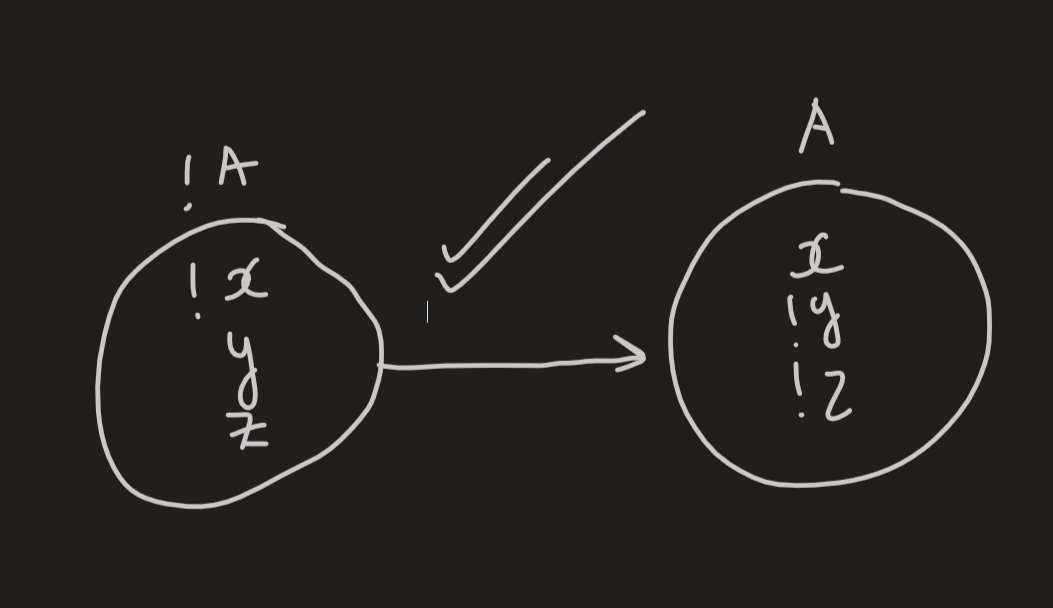 !A
!x
y
z
A
x
!y
!z